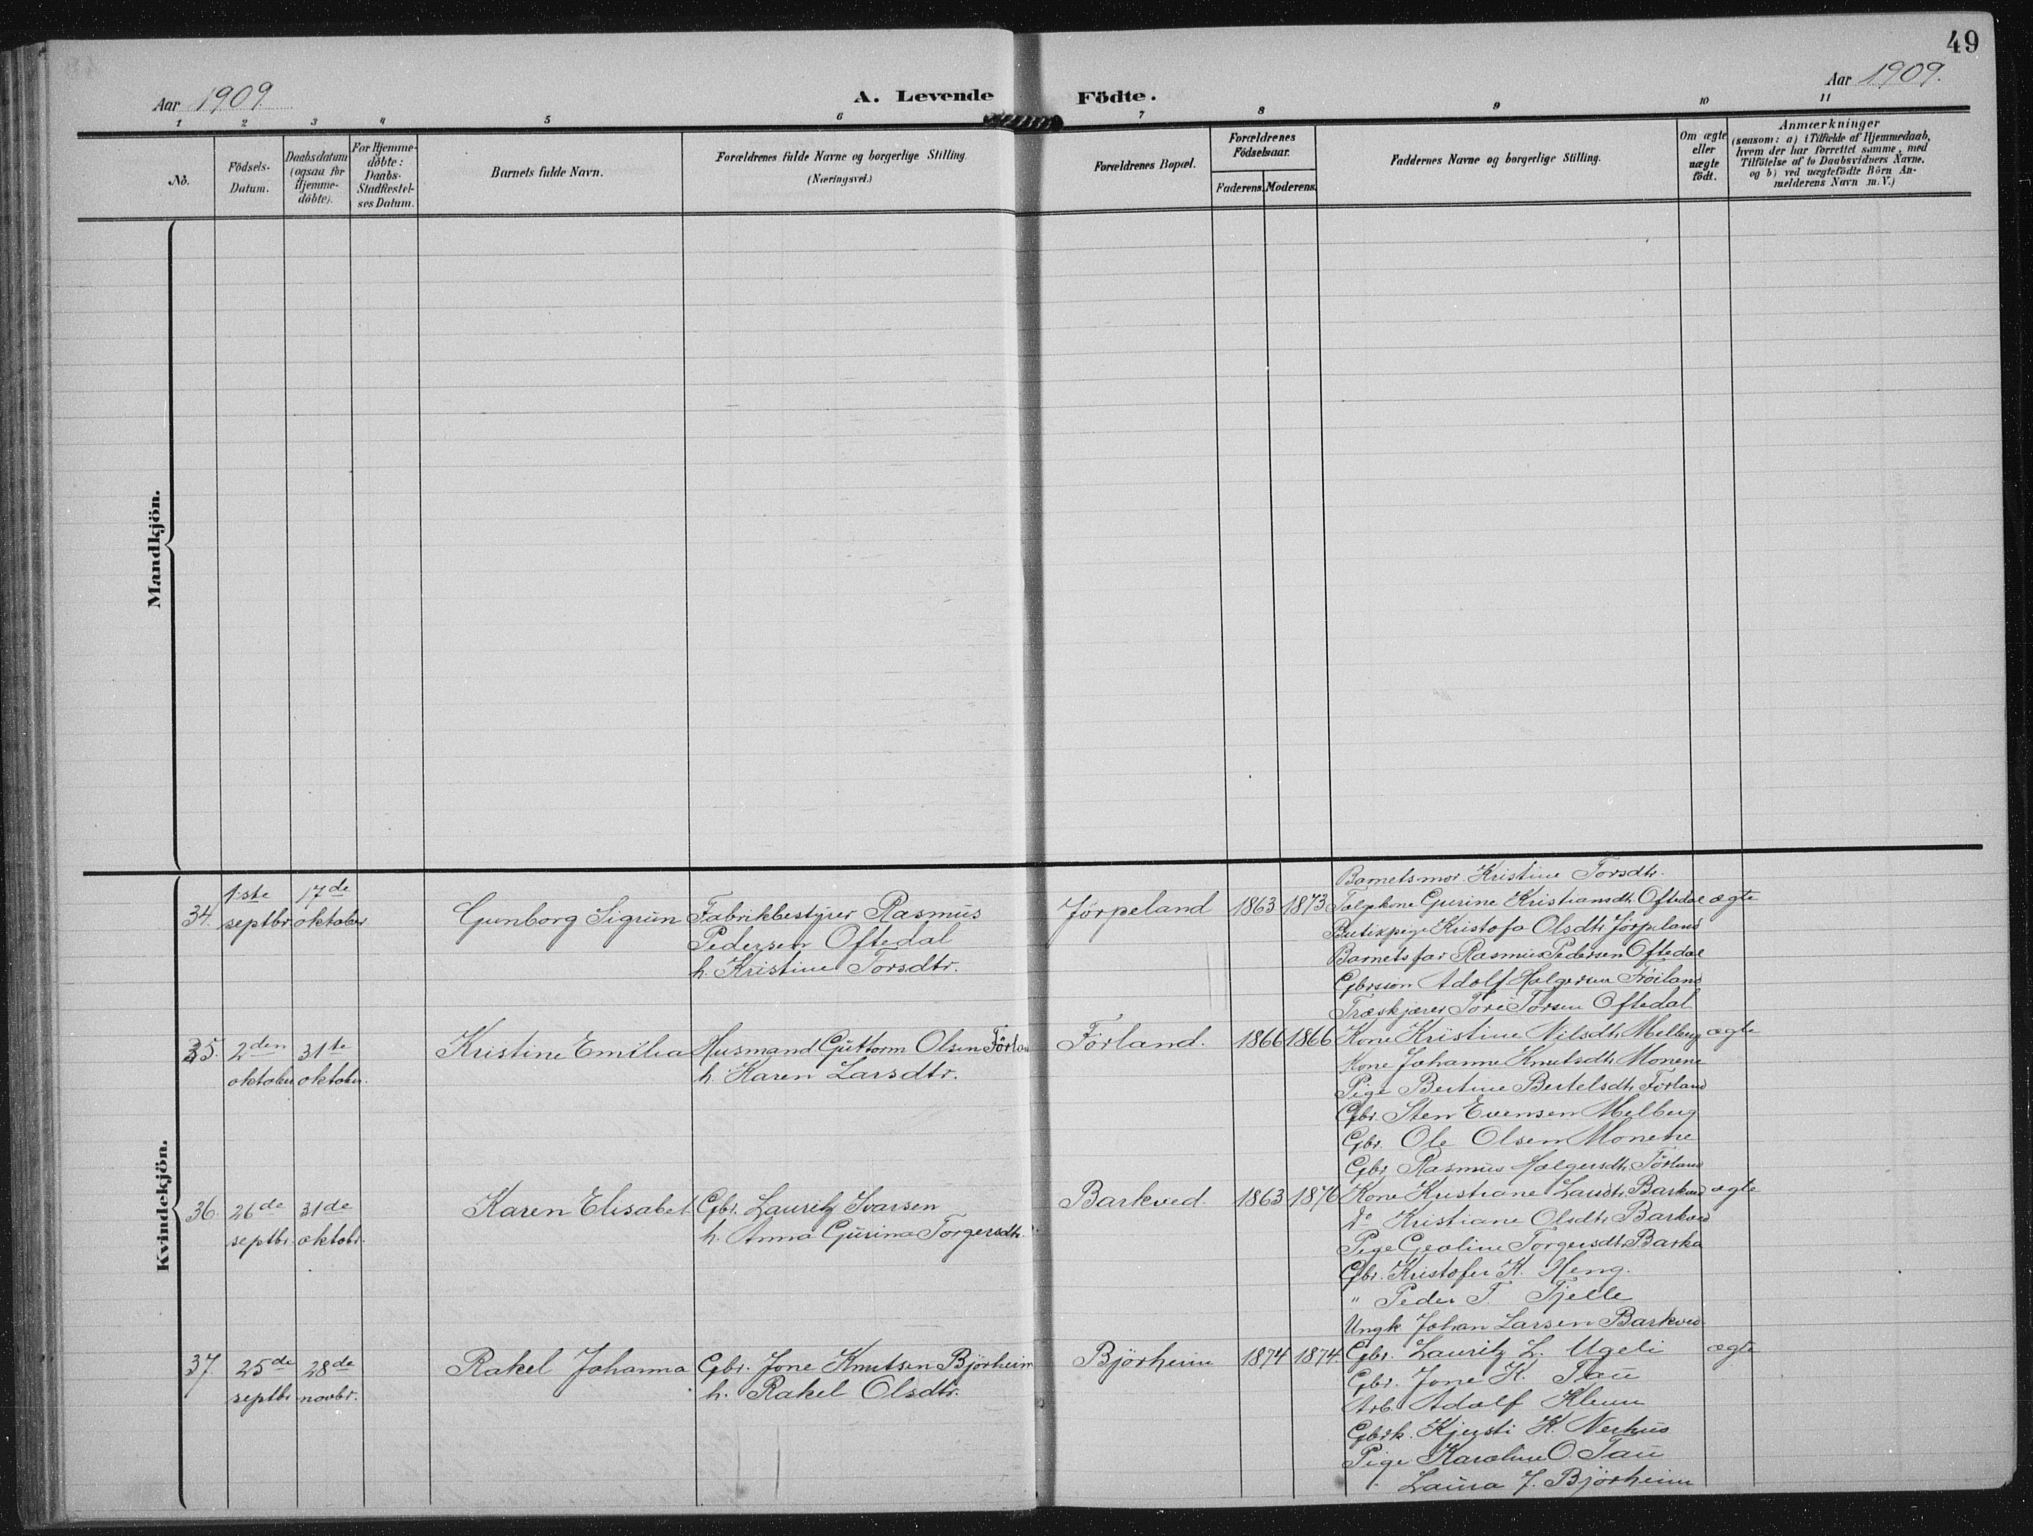 49
Aar 1909
A. Levende Födte.
Aar 1909.
1 2 3 4 5 6 7 8 9 10 11
No.
Födsels-
Datum.
Daabsdatum
(ogsaa for
Hjemme-
döbte).
For Hjemme-
döbte:
Daabs-
Stadfæstel-
ses Datum.
Barnets fulde Navn.
Forældrenes fulde Navne og borgerlige Stilling.
(Næringsvei.)
Forældrenes Bopæl.
Forældrenes
Födselsaar.
Faderens. Moderens.
Faddernes Navne og borgerlige Stilling.
Om ægte
eller
uægte
födt.
Anmærkninger
(saasom: a) i Tilfælde af Hjemmedaab,
hvem der har forrettet samme, med
Tilföielse af to Daabsvidners Navne.
og b) ved uægtefödte Börn An-
melderens Navn m. V.)
Mandkjön.
Kvindekjön.
34. 1ste septbr. 17de oktober
Gunborg Sigrun
Fabrikbestyrer Rasmus
Pedersen Oftedal
h. Kristine Torsdtr.
Jørpeland 1863 1873
Barnets mor Kristine Torsdtr.
Kristiansdtr. Oftedal ægte
Butikpige Kristofa Olsdtr. Jørpeland
Barnets far Rasmus Pedersen Oftedal
Gbrssøn Adolf Holgersen Frøiland
Træskjærer Tore Torsen Oftedal
35. 2den oktober 31te oktober.
Kristine Emilia
Husmand Guttorm Olsen Førla
h. Karen Larsdtr.
Førland. 1866 1866
Kone Kristine Nilsdtr. Melberg ægte
Kone Johanne Knutsdtr. Monene
Pige Bertine Bertelsdtr. Førland
Gbr. Sten Evensen Melberg
Gbr. Ole Olsen Monene
Gbr. Rasmus Holgersdtr. Førland
36. 26de septbr. 31de oktobr.
Karen Elisabet
Gbr. Lauritz Ivarsen
h. Anna Gurina Torgersdtr.
Barkved 1863 1876
Kone Kristiane Larsdtr. Barkved ægte
Do Kristiane Olsdtr. Barkved
Pige Torgersdtr. Barka
Gbr. Kristofer K. Heng.
" Peder T. Fjelle
Ungk. Johan Larsen Barkved
37. 25de septbr. 28de novbr.
Rakel Johanna
Gbr. Jone Knutsen Bjørheim
h. Rakel Olsdtr.
Bjørheim 1874 1874.
Gbr. Lauritz L. Ugeli ægte
Gbr. Jone K. Tau
Arb. Adolf
Gbrk. Kjersti K. Nerhus
Pige Karoline O. Tau
Laura J. Bjørheim